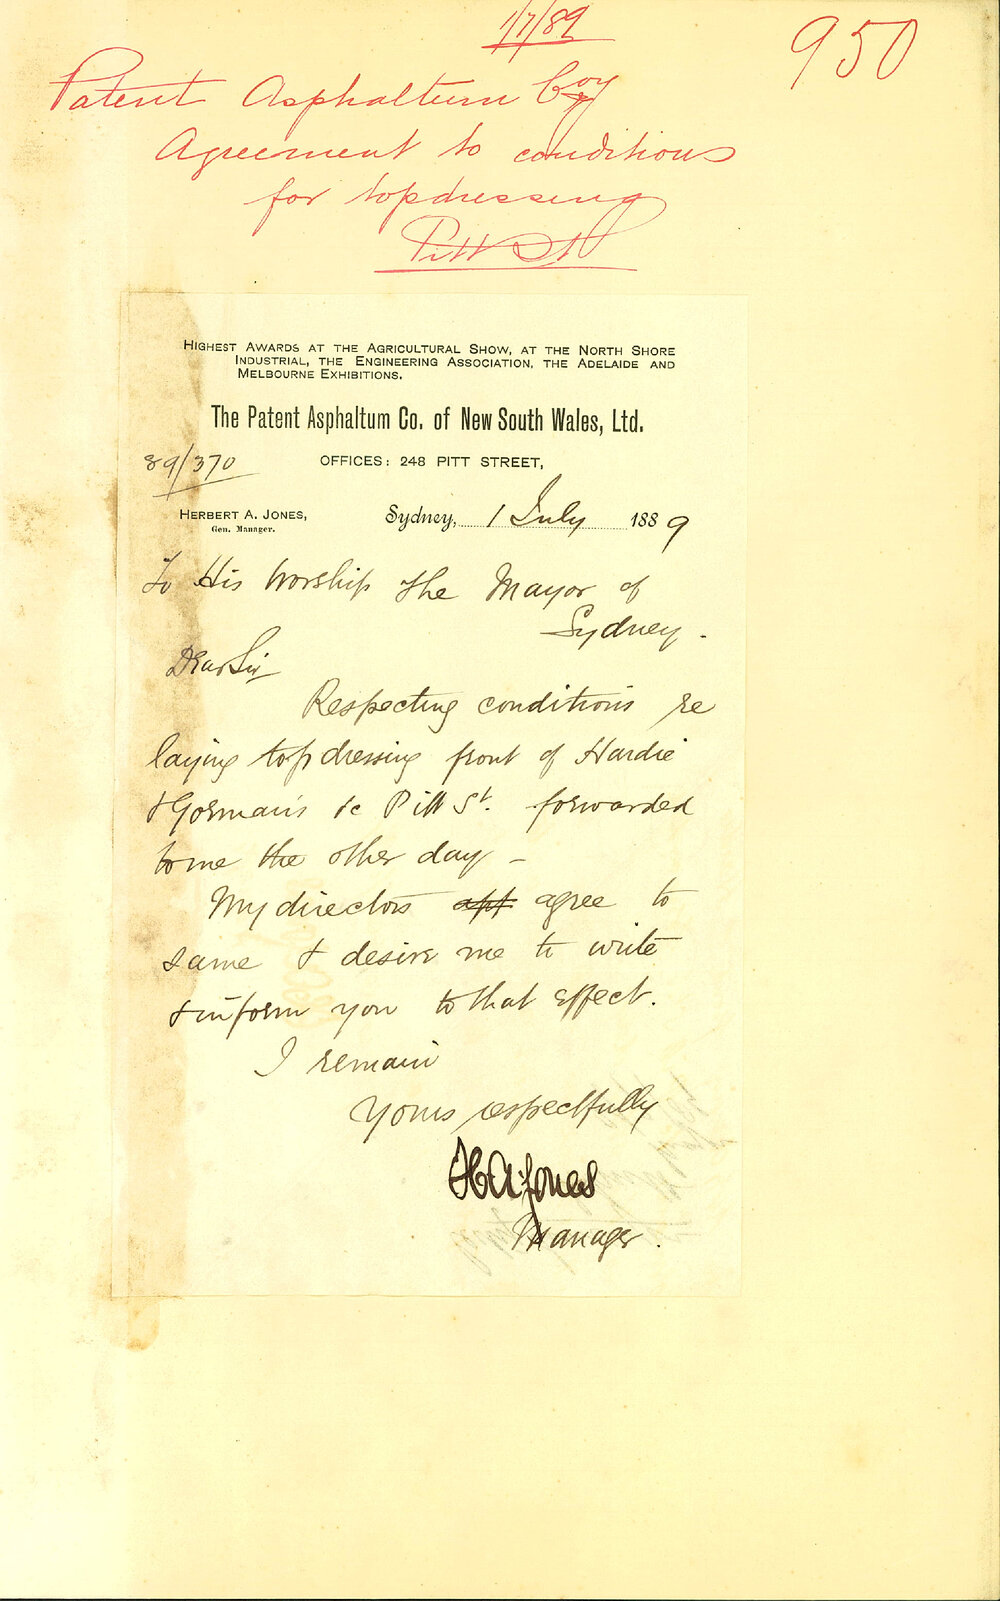 1/7/89
950
Patent Asphaltum Coy
Agreement to conditions
for topdressing
Pitt St
HIGHEST AWARDS AT THE AGRICULTURAL SHOW, AT THE NORTH SHORE
INDUSTRIAL, THE ENGINEERING ASSOCIATION, THE ADELAIDE AND
MELBOURNE EXHIBITIONS.
The Patent Asphaltum Co. of New South Wales, Ltd.
89/370
OFFICES: 248 PITT STREET,
HERBERT A. JONES,
Gen. Manager.
Sydney, 1 July 1889
To His Worship the Mayor of
Sydney.
Dear Sir
Respecting conditions re
laying topdressing front of Hardie
& Gorman's &c Pitt St. forwarded
to me the other day –
My directors app agree to
same & desire me to write
& inform you to that effect.
I remain
Yours respectfully
H A Jones
Manager.